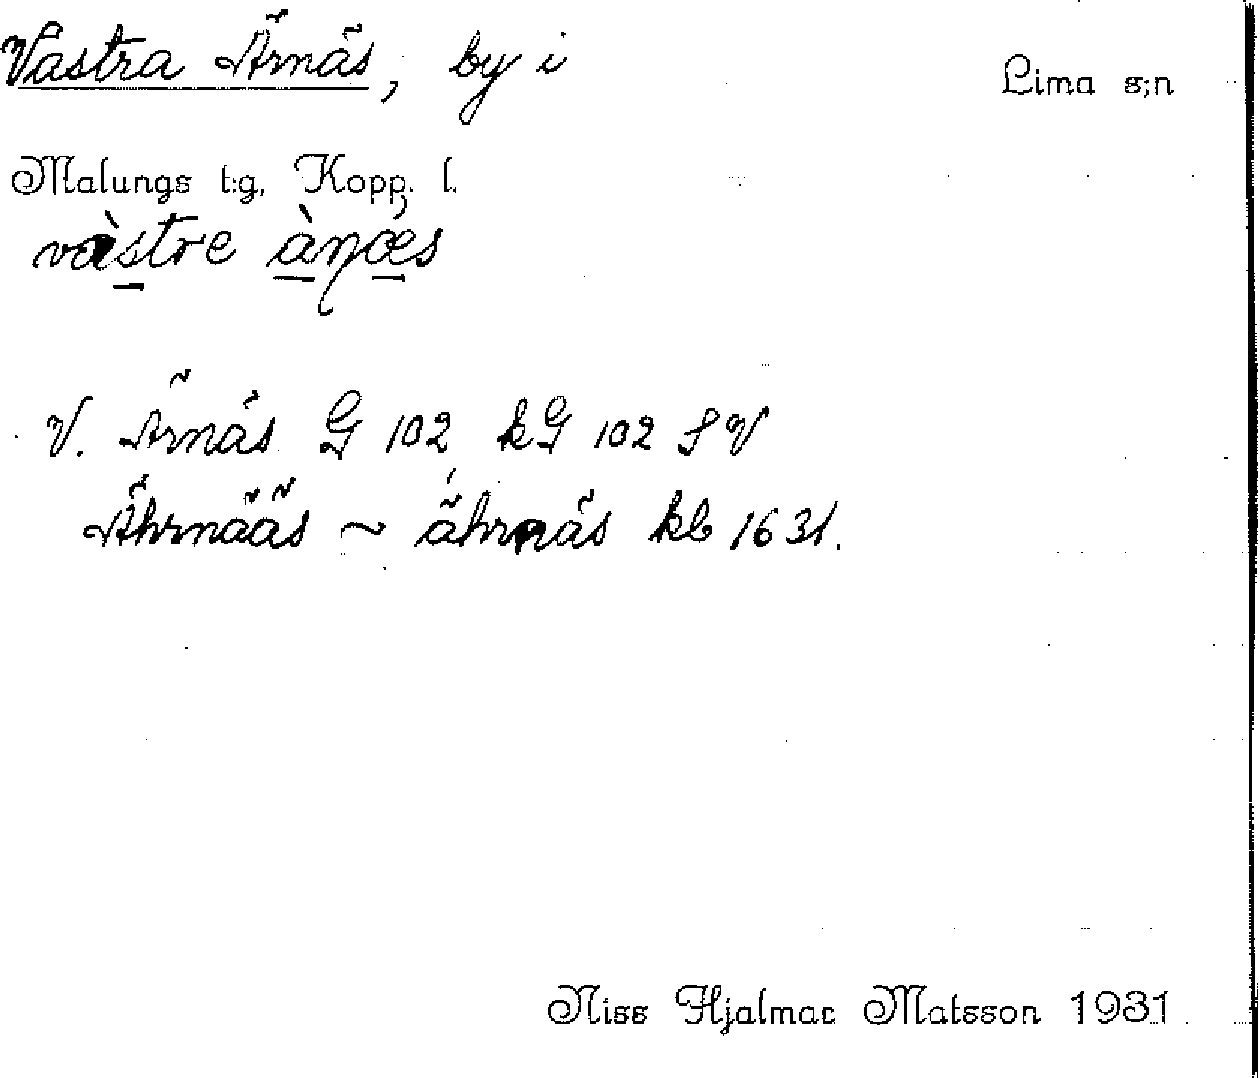 Västra Ärnäs, by i Lima s;n
Malungs t:g, Kopp. l.
västre àŋæs
V. Ärnäs G 102 kG 102 SV
Ährnääs ~ ährnäs kb 1631.
Niss Hjalmar Matsson 1931